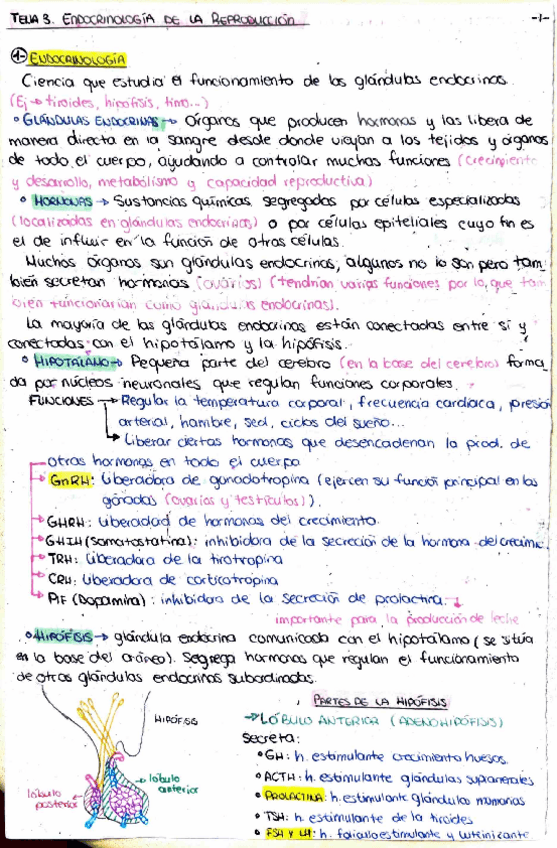 TEMA 3. ENDOCRINOLOGÍA DE LA REPRODUCCIÓN -1-
1- ENDOCRINOLOGÍA
Ciencia que estudia el funcionamiento de las glándulas endocrinas.
(Ej → tiroides, hipófisis, timo...)
• GLÁNDULAS ENDOCRINAS → Órganos que producen hormonas y las libera de
manera directa en la sangre desde donde viajan a los tejidos y órganos
de todo el cuerpo, ayudando a controlar muchas funciones (crecimiento
y desarrollo, metabolismo y capacidad reproductiva)
• HORMONAS → Sustancias químicas, segregadas por células especializadas
(localizadas en glándulas endocrinas) o por células epiteliales cuyo fin es
el de influir en la función de otras células.
Muchos órganos son glándulas endocrinas, algunos no lo son pero tam
bién secretan hormonas (ovarios) (tendrían varias funciones por lo que tam
bién funcionarían como glándulas endocrinas).
La mayoría de las glándulas endocrinas están conectadas entre sí y
conectadas con el hipotálamo y la hipófisis.
• HIPOTÁLAMO → Pequeña parte del cerebro (en la base del cerebro) forma
da por núcleos neuronales que regulan funciones corporales.
FUNCIONES → Regular la temperatura corporal, frecuencia cardíaca, presión
arterial, hambre, sed, ciclos del sueño...
→ Liberar ciertas hormonas que desencadenan la prod. de
otras hormonas en todo el cuerpo
→ GnRH: Liberadora de gonodotropina (ejercen su función principal en las
gónadas (ovarios y testículos)).
→ GHRH: Liberadad de hormonas del crecimiento.
→ GHIH (somatostatina): inhibidora de la secreción de la hormona del crecimic.
→ TRH: Liberadora de la tirotropina
→ CRH: Liberadora de corticotropina
→ PIF (Dopamina): inhibidora de la secreción de prolactina.
importante para la producción de leche
• HIPÓFISIS → glándula endocrina comunicada con el hipotálamo (se sitúa
en la base del cráneo). Segrega hormonas que regulan el funcionamiento
de otras glándulas endocrinas subordinadas.
HIPÓFISIS
lóbulo anterior
lóbulo posterior
PARTES DE LA HIPÓFISIS
→ LÓBULO ANTERIOR (ADENOHIPÓFISIS)
Secreta:
• GH: h. estimulante crecimiento huesos.
• ACTH: h. estimulante glándulas suprarrenales
• PROLACTINA: h. estimulante glándulas mamarias
• TSH: h. estimulante de la tiroides
• FSH y LH: h. foliculoestimulante y luteinizante